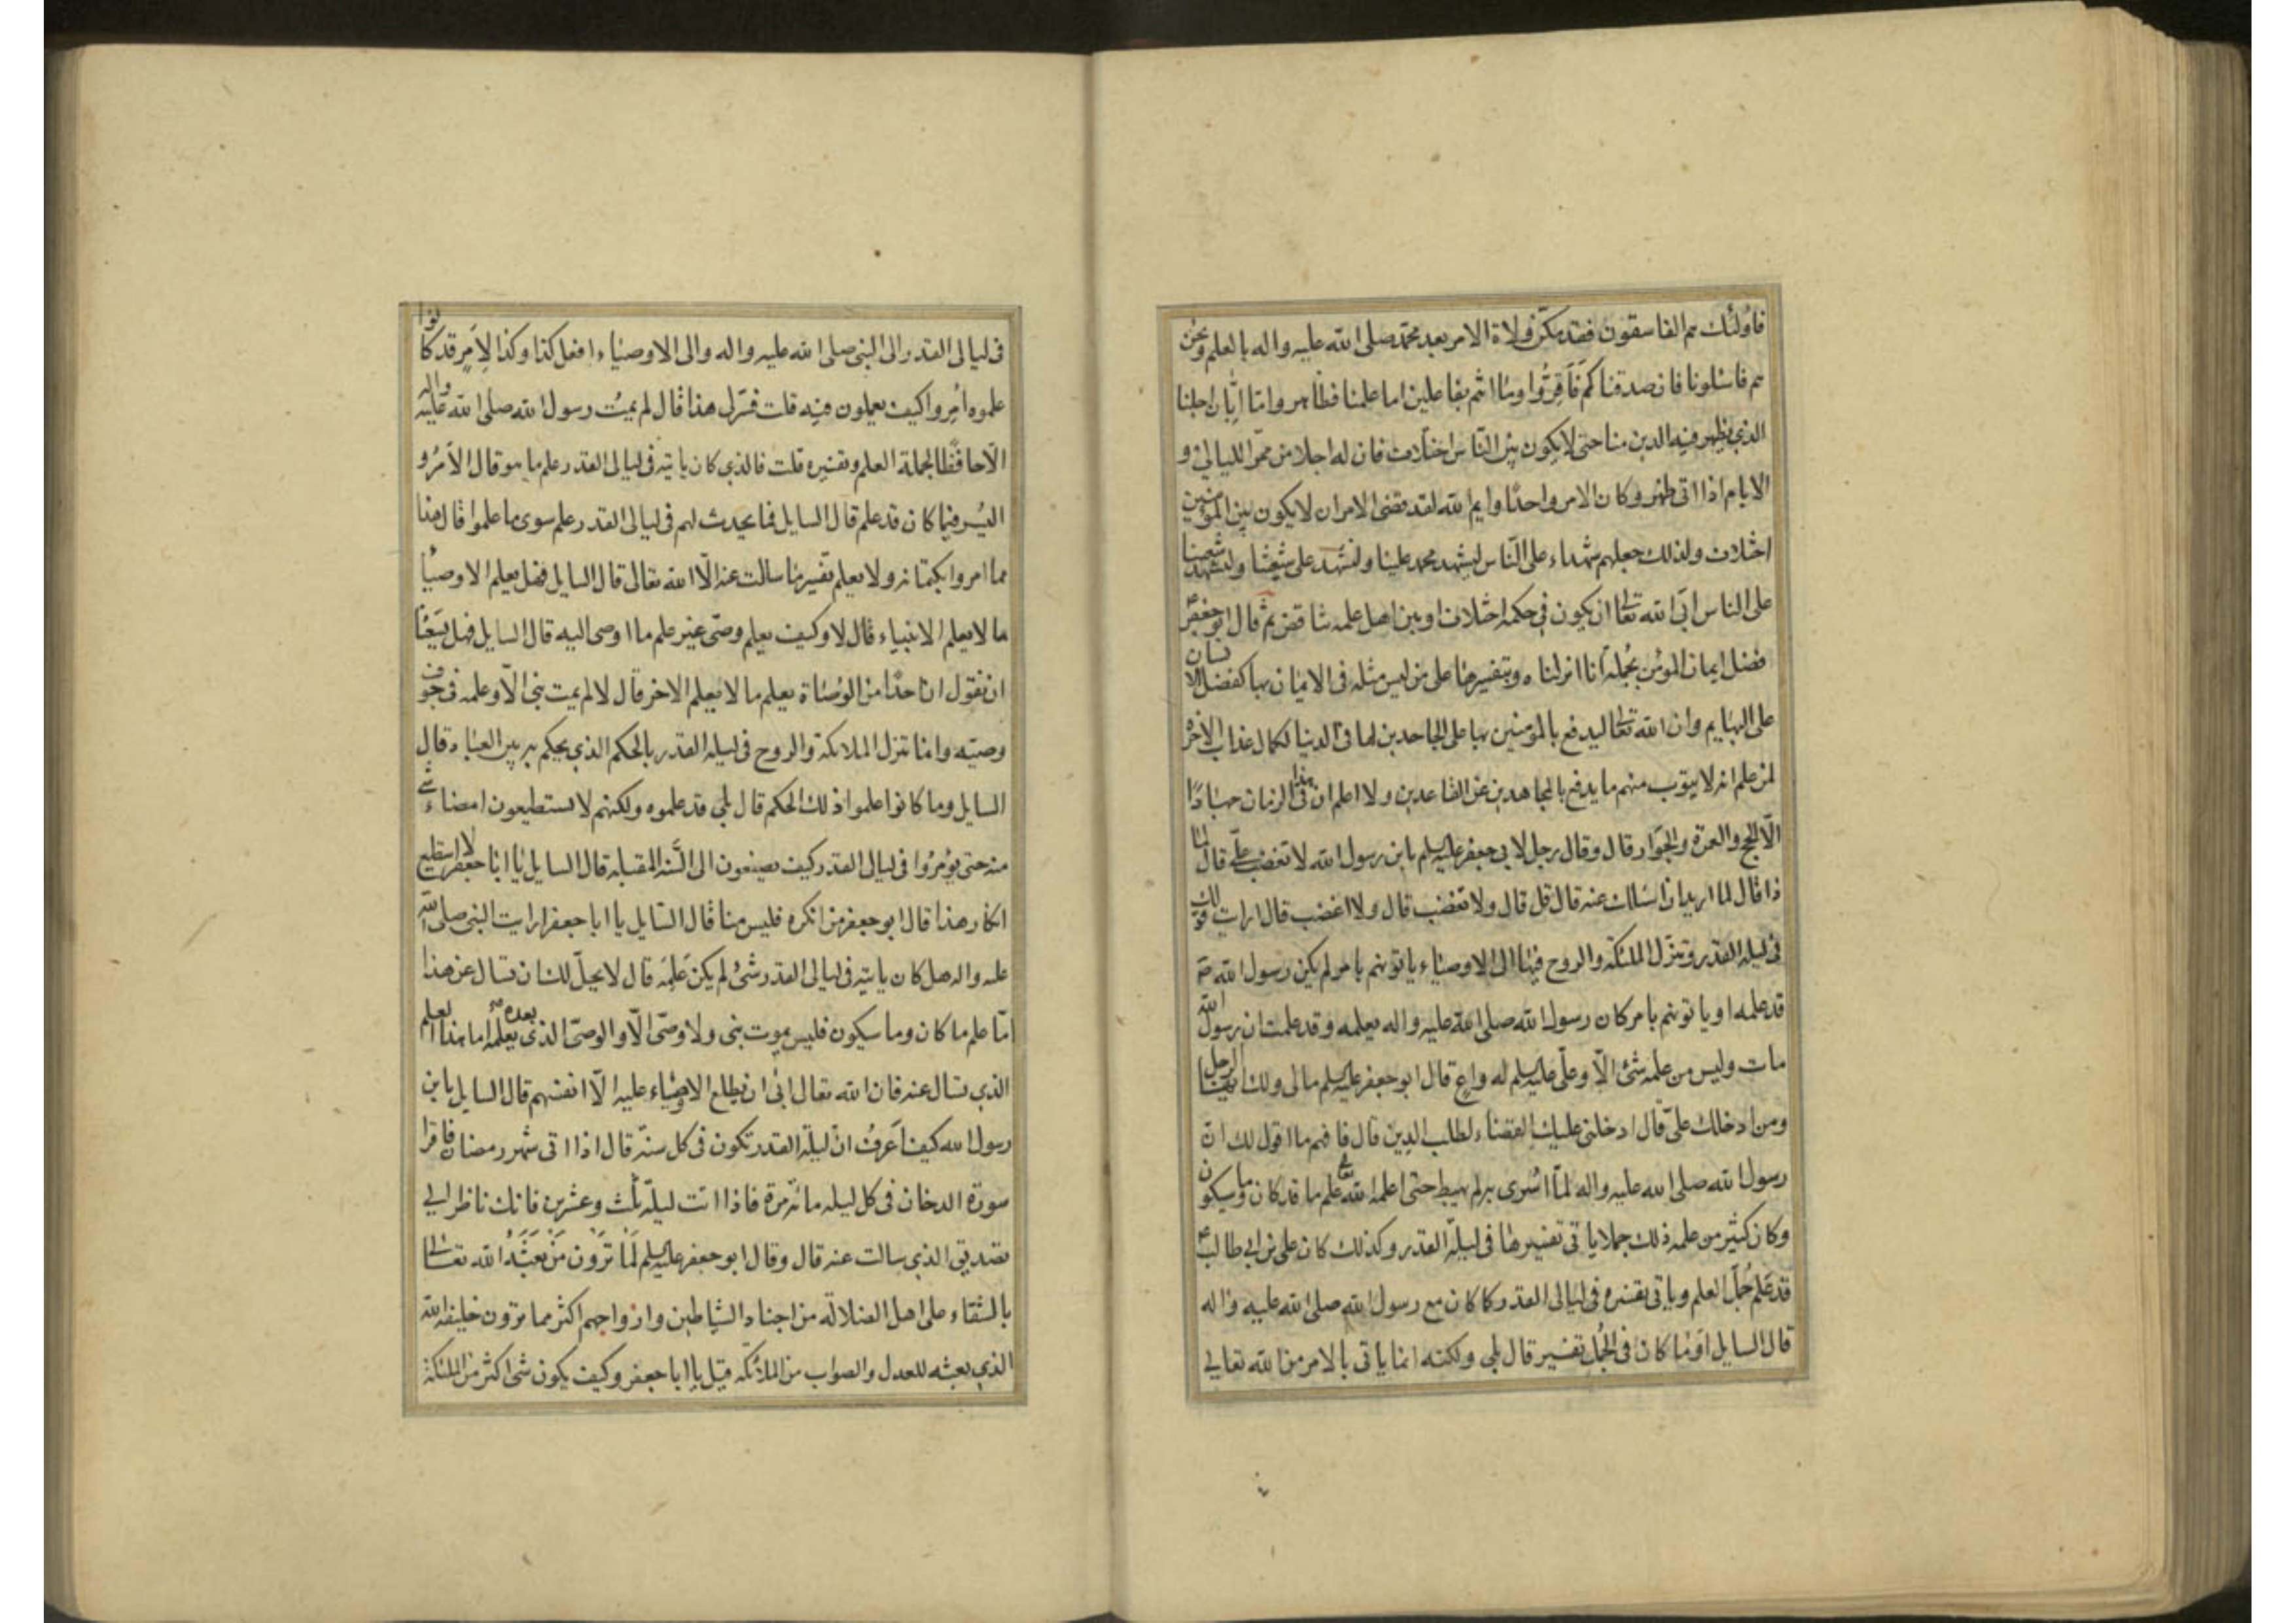 فاولئك هم الفاسقون فقد مكّن ولاة الامر بعد محمّد صلى الله عليه واله بالعلم ونحن
هم فاسئلونا فان صدقناكم فَاَقِرُّوا وما انتم بفاعلين اما علمنا فظاهر وامّا اِبّان اجلنا
الذي يظهر فيه الدين منا حتى لا يكون بين النّاس اختلاف فان له اجلا من ممرّ الليالي و
الايام اذا اتى ظهر وكان الامر واحدًا وايم الله لقد قضى الامر ان لا يكون بين المؤمنين
اختلاف ولذلك جعلهم شهداء على النّاس ليشهد محمد علينا ولنشهد على شيعتنا ولتشهد شيعتنا
على الناس ابَى الله تعالى ان يكون في حكمه اختلاف او بين اهل علمه تناقض ثم قال ابو جعفر ع
فضل ايمان المؤمن بجُملة انا انزلناه وبتفسيرها على من ليس مثله في الايمان بها كفضل الانسان
على البهايم وان الله تعالى ليدفع بالمؤمنين بها على الجاحدين لها في الدنيا لكمال عذاب الاخرة
لمن علم انه لا يتوب منهم ما يدفع بالمجاهدين عن القاعدين ولا اعلم ان في هذا الزمان جهادًا
الّا الحج والعمرة والجوار قال وقال رجل لابي جعفر عليه السلم يا بن رسول الله لا تغضب علّي قال لما
ذا قال لما اريد ان اسئلك عنه قال قل قال ولا تغضب قال ولا اغضب قال ارايت قولك
في ليلة القدر وتنزّل الملئكة والروح فيها الى الاوصياء ياتونهم بامر لم يكن رسول الله صه
قد علمه او ياتونهم بامر كان رسول الله صلى الله عليه واله يعلمه وقد علمت ان رسول الله
مات وليس من علمه شئ الّا وعلّي عليه السلم له واعٍ قال ابو جعفر عليه السلم مالى ولك ايها الرجل
ومن ادخلك علّي قال ادخلني عليك القضاء لطلب الدِين قال فافهم ما اقول لك انّ
رسول الله صلى الله عليه واله لمّا اُسرى به لم يهبط حتى اعلمه الله تعالى علم ما قد كان وما سيكون
وكان كثير من علمه ذلك جملا ياتي تفسيرها في ليلة القدر وكذلك كان علي بن ابي طالب ع
قد عَلِم جُملَ العلم وياتي تفسيره في ليالي القدر كما كان مع رسول الله صلى الله عليه واله
قال السايل اَوَما كان في الجُمل تفسير قال بلي ولكنه انما ياتي بالامر من الله تعالى
في ليالى القدر الى النبي صلى الله عليه واله والى الاوصياء افعل كذا وكذا لِاَمرٍ قد كانوا
علموه اُمِروا كيف يعملون فيه قلت فسّر لى هذا قال لم يمت رسول الله صلى الله عليه واله
الّا حافظًا لجملة العلم وتفسيره قلت فالذي كان ياتيه في ليالى القدر علم ما هو قال الاَمرُ و
اليُسر فيما كان قد علم قال السايل فما يحدث لهم في ليالى القدر علم سوى ما علموا قال هذا
مما امروا بكتمانه ولا يعلم تفسير ما سالت عنه الّا الله تعالى قال السايل فهل يعلم الاوصياء
ما لا يعلم الانبياء قال لا وكيف يعلم وصّي غير علم ما اوصى اليه قال السايل فهل يسَعُنا
ان نقول ان احدًا من الوُصاة يعلم ما لا يعلم الاخر قال لا لم يمت نبي الّا وعلمه في جوف
وصيّه وانما تنزل الملائكة والروح في ليلة القدر بالحكم الذي يحكم به بين العباد قال
السايل وما كانوا علموا ذلك الحكم قال بلي قد علموه ولكنهم لا يستطيعون امضاء شئ
منه حتى يؤمرُوا في ليالى القدر كيف يصنعون الى السَّنة المقبلة قال السايل يا ابا جعفر لا استطيع
انكار هذا قال ابو جعفر من انكره فليس منا قال السّايل يا ابا جعفر ارايت النبي صلى الله
عليه واله هل كان ياتيه في ليالى القدر شئ لم يكن عَلِمَه قال لا يحلّ لك ان تسال عن هذا
امّا علم ما كان وما سيكون فليس يموت نبي ولا وصّي الّا والوصّي الذي بعده يعلمه اما هذا العلم
الذي تسال عنه فان الله تعالى ابَى ان يطلع الاوصياء عليه الّا انفسهم قال السايل يا بن
رسول الله كيف اَعرفُ انّ ليلة القدر تكون في كل سنة قال اذا اتى شهر رمضان فاقرا
سورة الدخان في كل ليله مائة مرة فاذا اتت ليلة ثلث وعشرين فانك ناظر الى
تصديق الذي سالت عنه قال وقال ابو جعفر عليه السلم لَمَا تَرَون مَن بَعَثَهُ الله تعالى
بالشقاء على اهل الضلالة من اجناد الشياطين وازواجهم اكثر مما ترون خليفة الله
الذي بعثه للعدل والصواب من الملائكة قيل يا ابا جعفر وكيف يكون شئ اكثر من الملئكة